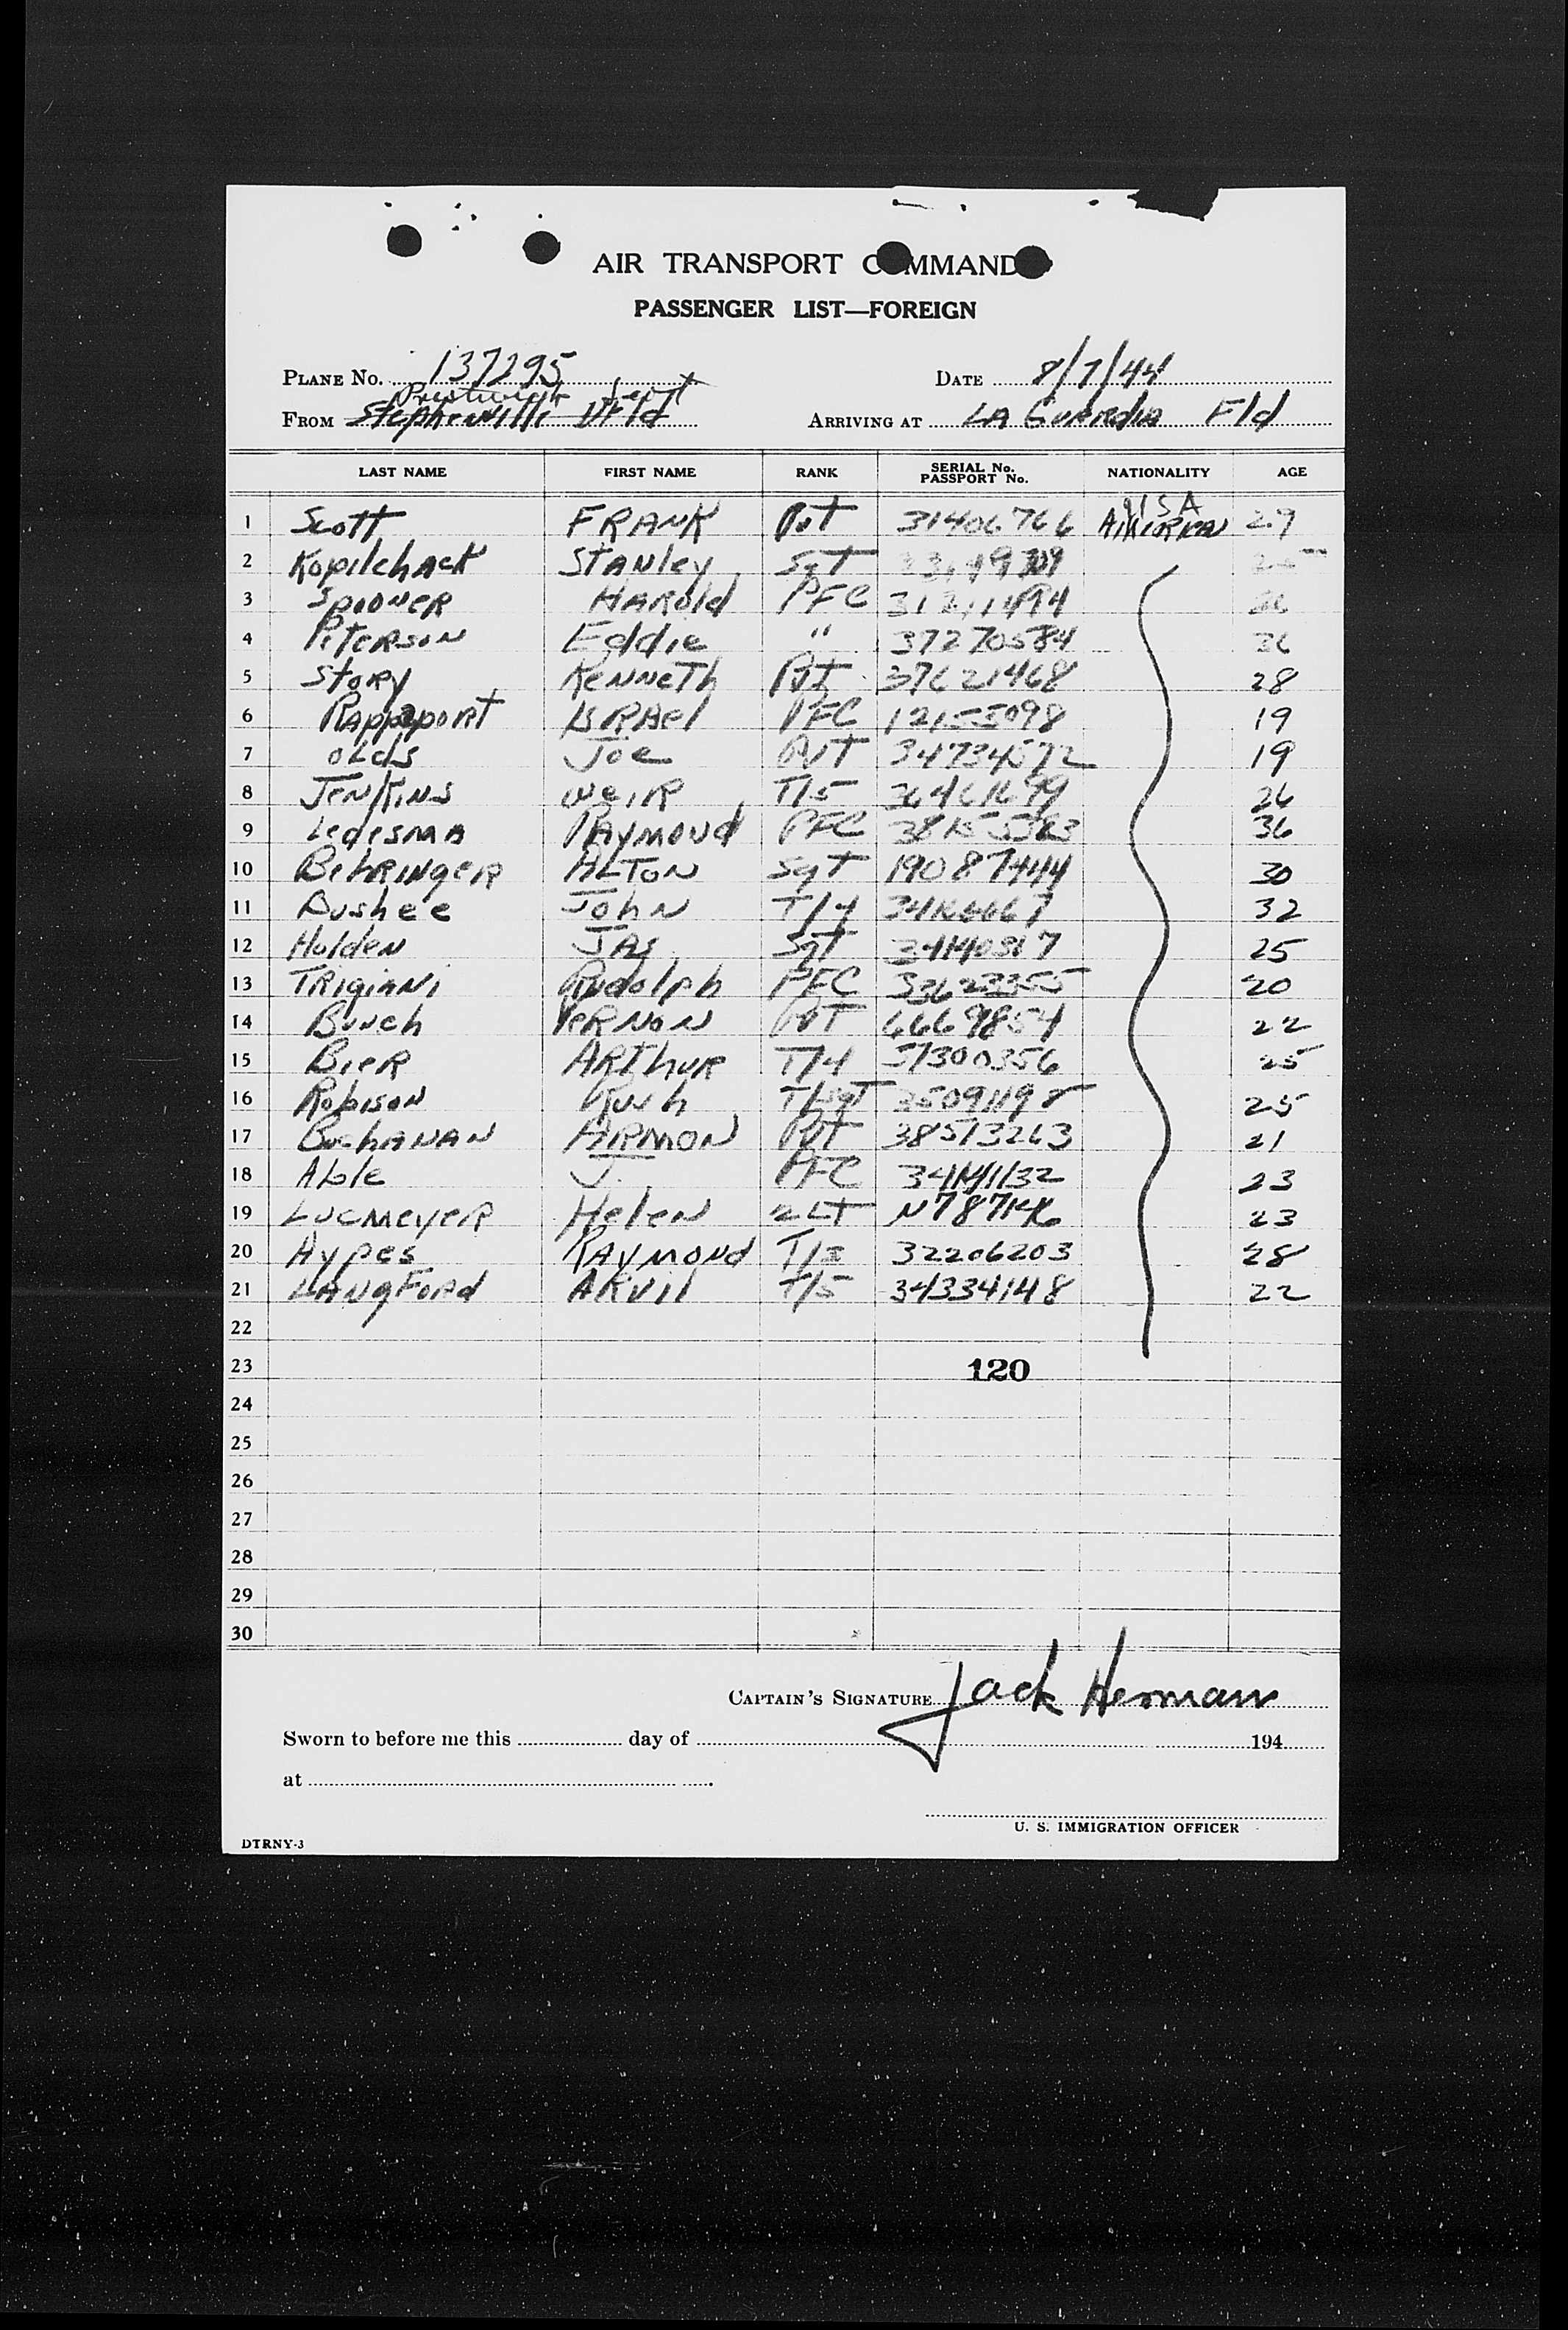 AIR TRANSPORT COMMAND
PASSENGER LIST—FOREIGN
PLANE No. 137295 DATE 8/7/44
Prestwick
FROM Stephenville Fld ARRIVING AT LA GUARDIA Fld
LAST NAME FIRST NAME RANK SERIAL No. PASSPORT No. NATIONALITY AGE
USA
1 Scott FRANK Pvt 31406766 AMERICAN 29
2 Kopilchack STANley Sgt
3 SPOONER HAROld PFC 31211494
4 PETERSON Eddie " 37270584
5 Story KENNETh Pvt 37621468 28
6 Rappaport ISRAel PFC 12155098 19
7 OLds Joe PVT 34734572 19
8 JENKINS WeIR T/5 36461699 26
9 Ledesma RAYMOND PFC 38155383 36
10 BehRINgeR ALTON Sgt 19087444 30
11 Bushee John T/4 32
12 Holden JAS Sgt 34140317 25
13 TRIGIANI Rudolph PFC 33623355 20
14 Bunch VeRNON PVT 6669854 22
15 BIER ARThuR T/4 37300356 25
16 Robison Rush T/Sgt 35091198 25
17 BuchANAN ARMON PVT 38513263 21
18 Able J. PFC 34141132 23
19 LucMeyeR HeleN 2LT 23
20 Aypes RAYMONd T/ 32206203 28
21 LANGFORd ARVIl T/5 34334148 22
22
23 120
24
25
26
27
28
29
30
CAPTAIN'S SIGNATURE Jack Herman
Sworn to before me this day of 194
at
U. S. IMMIGRATION OFFICER
DTRNY-3